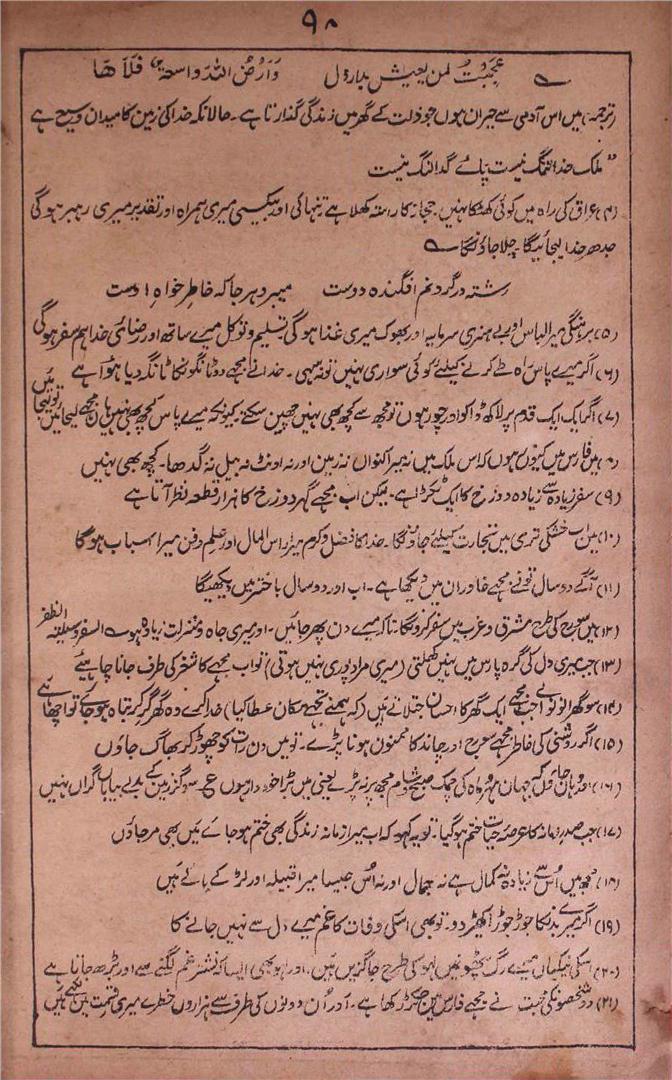 ۹۰
عجبتُ لمن یعیش بدار ذل وَارضُ اللہ واسعۃ فلاھا
(ترجمہ) میں اس آدمی سے حیران ہوں جو ذلت کے گھر میں زندگی گذارتا ہے۔ حالانکہ خدا کی زمین کا میدان وسیع ہے
"ملک خدا تنگ نیست پائے گدا لنگ نیست
(۴) عراق کی راہ میں کوئی کھٹکا نہیں۔ حجاز کا راستہ کھلا ہے تنہائی اور بیکسی میری ہمراہ اور تقدیر میری رہبر ہوگی
جدھر خدا لیجائیگا چلا جاؤنگا
رشتہ در گردنم افگندہ دوست میبرد ہر جا کہ خاطر خواہ اوست
(۵) برہنگی میرا لباس اور بے ہنری سرمایہ اور بھوک میری غذا ہوگی تسلیم و توکل میرے ساتھ اور رضائی خدا ہم سفر ہوگی
(۶) اگر میرے پاس راہ طے کرنے کیلئے کوئی سواری نہیں تو نہ سہی۔ خدا نے مجھے دو ٹانگونکا ٹانگہ دیا ہوا ہے
(۷) اگر ایک ایک قدم پر لاکھ ڈاکو اور چور ہوں تو مجھ سے کچھ بھی نہیں چھین سکتے کیونکہ میرے پاس کچھ بھی نہیں ہاں مجھے لیجائیں تو لیجائیں
(۸) میں فارس میں کیوں ہوں کہ اس ملک میں نہ میرا کنواں نہ زمین اور نہ اونٹ نہ بیل نہ گدھا۔ کچھ بھی نہیں
(۹) سفر زیادہ سے زیادہ دوزخ کا ایک ٹکڑا ہے۔ لیکن اب مجھے گھر دوزخ کا ہزار قطعہ نظر آتا ہے
(۱۰) میں اب خشکی تری میں تجارت کیلئے جاؤنگا۔ خدا کا فضل و کرم میرا راس المال اور علم و فن میرا اسباب ہوگا
(۱۱) آگے دو سال تونے مجھے خاوران میں دیکھا ہے۔ اب اور دو سال باختر میں دیکھیگا
(۱۲) میں سورج کی طرح مشرق و مغرب میں سفر کرونگا۔ تاکہ میرے دن پھر جائیں۔ اور میری جاہ و منزلت زیادہ ہو السفر وسیلۃ الظفر
(۱۳) جب میری دل کی گرہ پارس میں نہیں کھلتی (میری مراد پوری نہیں ہوتی) تو اب مجھے کاشغر کی طرف جانا چاہیئے
(۱۴) سو گھر والو تو اب مجھے ایک گھر کا احسان جتلاتے ہیں (کہ ہمنے تجھے مکان عطا کیا) خدا کرے وہ گھر گر کر تباہ ہو جائے تو اچھا ہے
(۱۵) اگر روشنی کی خاطر مجھے سورج اور چاند کا ممنون ہونا پڑے۔ تو میں دن رات کو چھوڑ کر بھاگ جاؤں
(۱۶) اور وہاں جاؤں کہ جہان مہر و ماہ کی چمک صبح شام مجھ پر نہ پڑے یعنی میں بڑا خوددار ہوں ع سو گز زمین کے بدلے بیاباں گراں نہیں
(۱۷) جب صدر زمانہ کا عرصہ حیات ختم ہو گیا۔ تو یہ کہو کہ اب میرا زمانہ زندگی بھی ختم ہو جائے میں بھی مر جاؤں
(۱۸) مجھ میں اُس سے زیادہ نہ کمال ہے نہ جمال اور نہ اُس جیسا میرا قبیلہ اور لڑکے بالے ہیں
(۱۹) اگر میرے بدنکا جوڑ جوڑ اکھیڑ دو۔ تو بھی اسکی وفات کا غم میرے دل سے نہیں جانے کا
(۲۰) اسکی نیکیاں میرے رگ پٹھوں میں لہو کی طرح جاگزیں ہیں۔ اور لہو بھی ایسا کہ نشتر غم لگنے سے اور بڑھ جاتا ہے
(۲۱) دو شخصونکی محبت نے مجھے فارس میں جکڑ رکھا ہے۔ اور اُن دونوں کی طرف سے ہزاروں خطرے میری قسمت میں لکھے ہیں